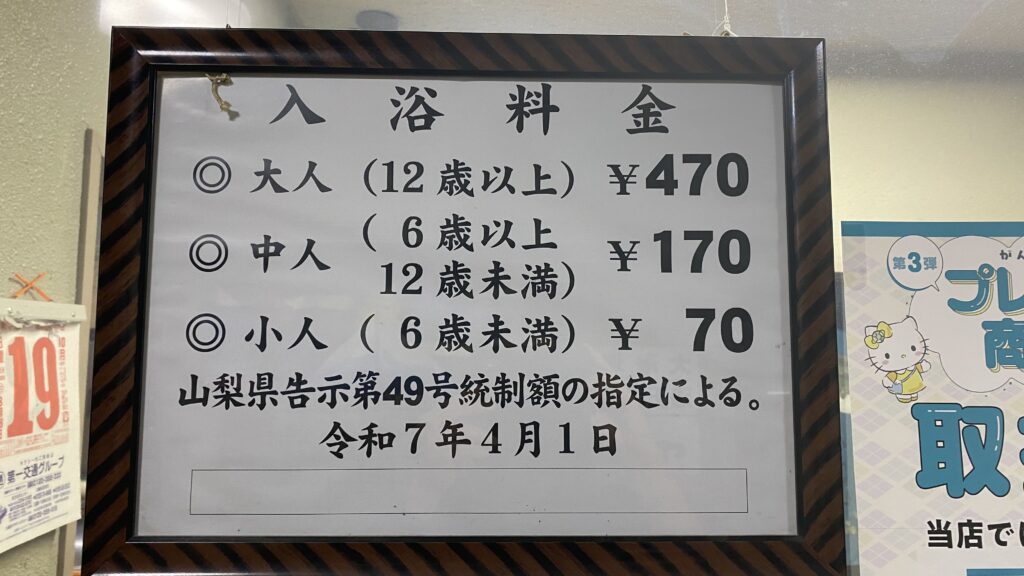 入浴料金
◎ 大人 (12歳以上) ¥470
◎ 中人 ( 6歳以上
12歳未満) ¥170
◎ 小人 ( 6歳未満) ¥ 70
山梨県告示第49号統制額の指定による。
令和7年4月1日
19
第一交通グループ
第3弾
プレ
商
取
当店で